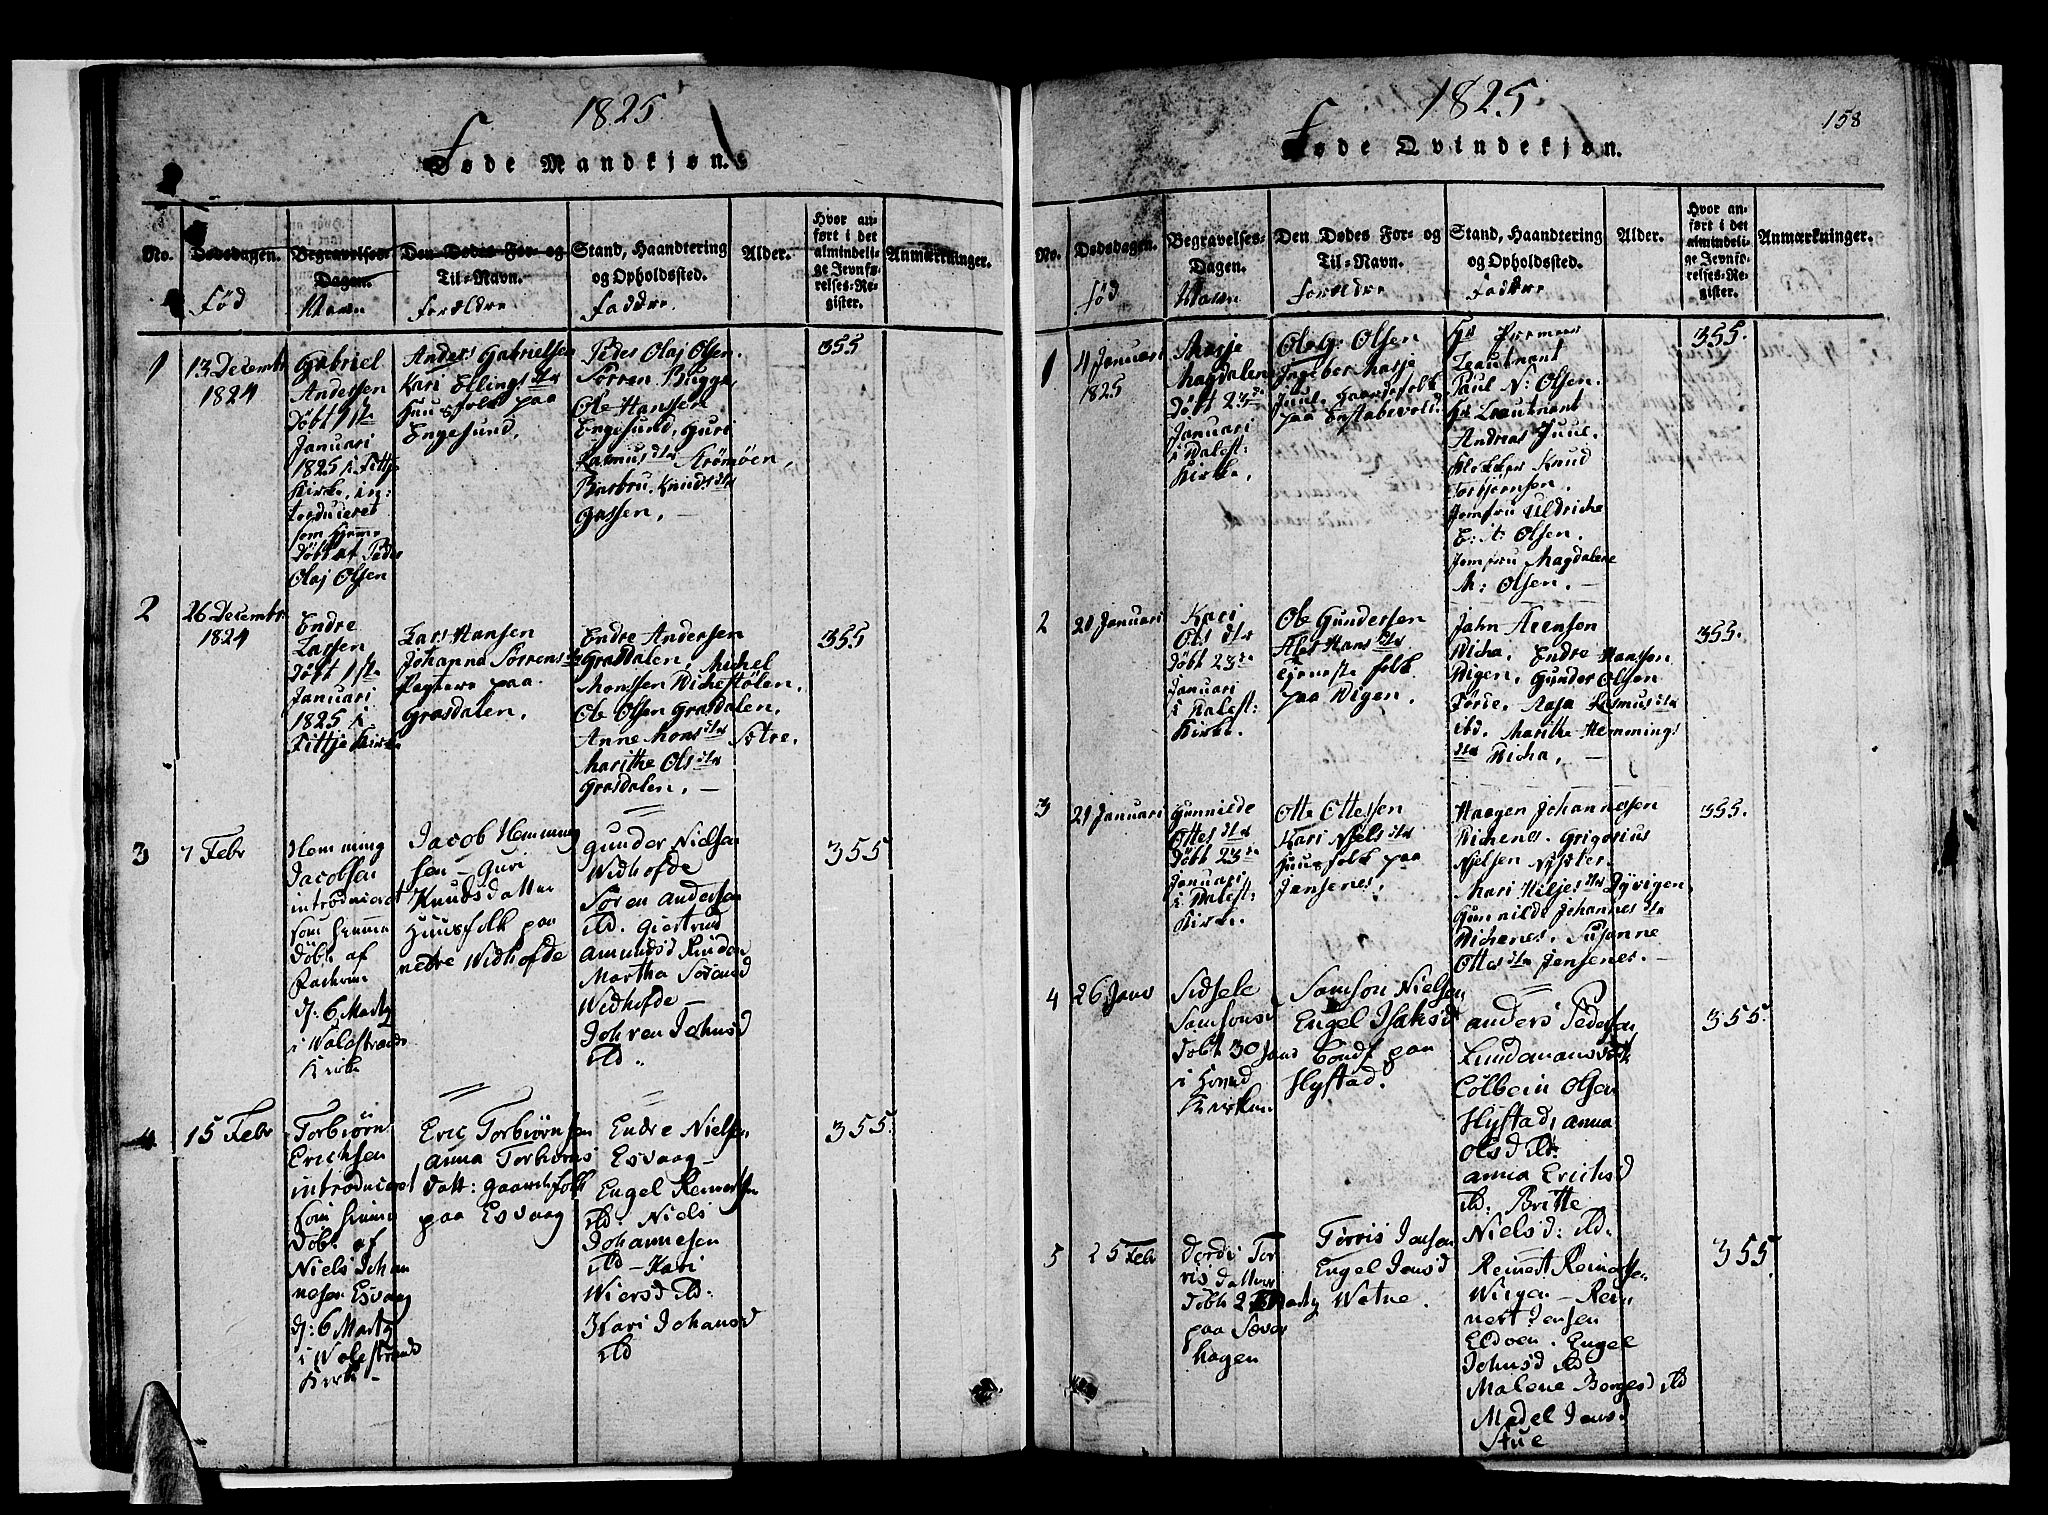 1825
Føde Mandkjøn.
No.
Dødsdagen.
Født
Begravelses-
Dagen.
Navn
Den Dødes For- og
Til-Navn.
Forældre
Stand, Haandtering
og Opholdssted.
Faddere.
Alder.
Hvor an-
ført i det
almindeli-
ge Jevnfø-
relses-Re-
gister.
Anmærkninger.
1
13 Decembr
1824
Gabriel
Andersen
Døbt 1ste
Januari
1825 i Fittje
Kirke, in:
troduceret
som Hjemme
Døbt af Peder
Olaj Olsen
Anders Gabrielsen
Kari Ellings dtr
Huusfolk paa
Engesund.
Peder Olaj Olsen.
Sørren Bugge,
Ole Hansen
Engesund, Guri
Rasmus dtr Strømøen,
Barbru Knuds dtr
Gassen. —
355
2
26 Decembr
1824
Endre
Larsen
Døbt 1ste
Januari
1825 i
Fittje Kirke
Lars Hansen
Johanna Sørrens dtr
Pagtere paa
Grasdalen.
Endre Andersen
Grasdalen, Michel
Monssen Wichestølen.
Ole Olsen Grasdalen.
Anne Mons dtr Sætre.
Marithe Ols dtr
Grasdalen. —
355
3
7 Febr
Hemming
Jacobsen
introduceret
som hiemme
Døbt af
d: 6 Marty
i Walestrands
Kirke
Jacob Hemming
sen – Guri
Knudsdatter
Huusfolk paa
nedre Widhofde
Gunder Nielsen
Widhofde
Søren Andersen
ibd. Giertrud
Amundsd Rinden
Martha Sørensd
Widhofde —
Johren Johnsd
ibd.
355
4
15 Febr
Torbiørn
Erichsen
introduceret
som hiemme
Døbt af
Niels Johan
nesen Esvaag
d: 6 Marty
i Walestrand
Kirke –
Eric Torbiørnsen
Anna Torbiørns
datt: Gaardfolk
paa Esvaag
Endre Nielsen
Esvaag —
Engel Reinertsen
ibd. Niels
Johannesen
ibd – Kari
Wiersd ibd:
Kari Johansd
ibd
355.
1825.
158
Føde Qvindekjøn.
No.
Dødsdagen.
Født
Begravelses-
Dagen.
Navn
Den Dødes For- og
Til-Navn.
Forældre
Stand, Haandtering
og Opholdssted.
Faddere
Alder.
Hvor an-
ført i det
almindeli-
ge Jevnfø-
relses-Re-
gister.
Anmærkninger.
1
4 Januari
1825
Masje
Magdalene
Døbt 23de
Januari
i Walest:
Kirke,
Ole G: Olsen
Ingebor Masje
Juul. Gaardfolk
paa Enstabevold.
Hr Premier
Leautnant
Paul N: Olsen.
Hr Leautnant
Andreas Juul.
Klokker Knud
Torbjørnsen.
Jomfru Uldriche
E: A: Olsen.
Jomfru Magdalene
M: Olsen. —
355.
2
20 Januari
Kari
Ols dtr
Døbt 23de
Januari
i Walest:
Kirke.
Ole Gundersen
Alet Hans dtr
Tjeneste folk
paa Digen.
John Arenson
Wicha, Endre Hanssen
Digen, Gunder Olsen
Førde. Aasa Rasmus dtr
ibd. Marithe Hemmings
dtr Wicha, —
355.
3
21 Januari
Gunnilde
Ottes dtr
Døbt 23de
Januari,
i Walest:
Kirke.
Otte Ottessen
Kari Njels dtr
Huusfolk paa
Jensenes.
Haagen Johannessen
Wichenes. Grigorius
Njelsen Nyster.
Mari Hiljes dtr Dyvigen
Gunnilde Johannes dtr
Wichenes. Susanne
Ottes dtr Jensenes. —
355.
4
26 Janu
Sidsele
Samsonsd
døbt 30 Janu
i Hoved
Kirken
Samson Nielsen
Engel Isaksd
bondf paa
Hystad.
Anders Pedersen
Lundemansverk
Colbein Olsen
Hystad, Anna
Olsd ibd.
Anna Erichsd
ibd. Britte
Nielsd: ibd.
355.
5
25 Febr
Dordi Tor
ris datter
døbt 2 Marty
paa Sever
hagen
Torris Jensen
Engel Jensd
Watne.
Reinert Reinertsen
Wigen – Rein
nert Jensen
Eldøen. Engel
Johnsd ibd
Malene Borgesd ibd
Madel Jensd
Stue
355.